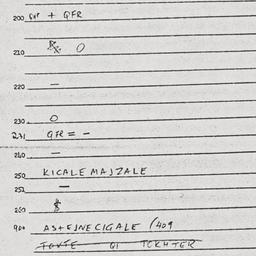 200 GHT + GFR
210 Rx O
220 —
230 O
231 GFR = —
240 —
250 KICALE MAJZALE
252 —
260 $
900 AS+EJNECIGALE (409
QI TOCHTER